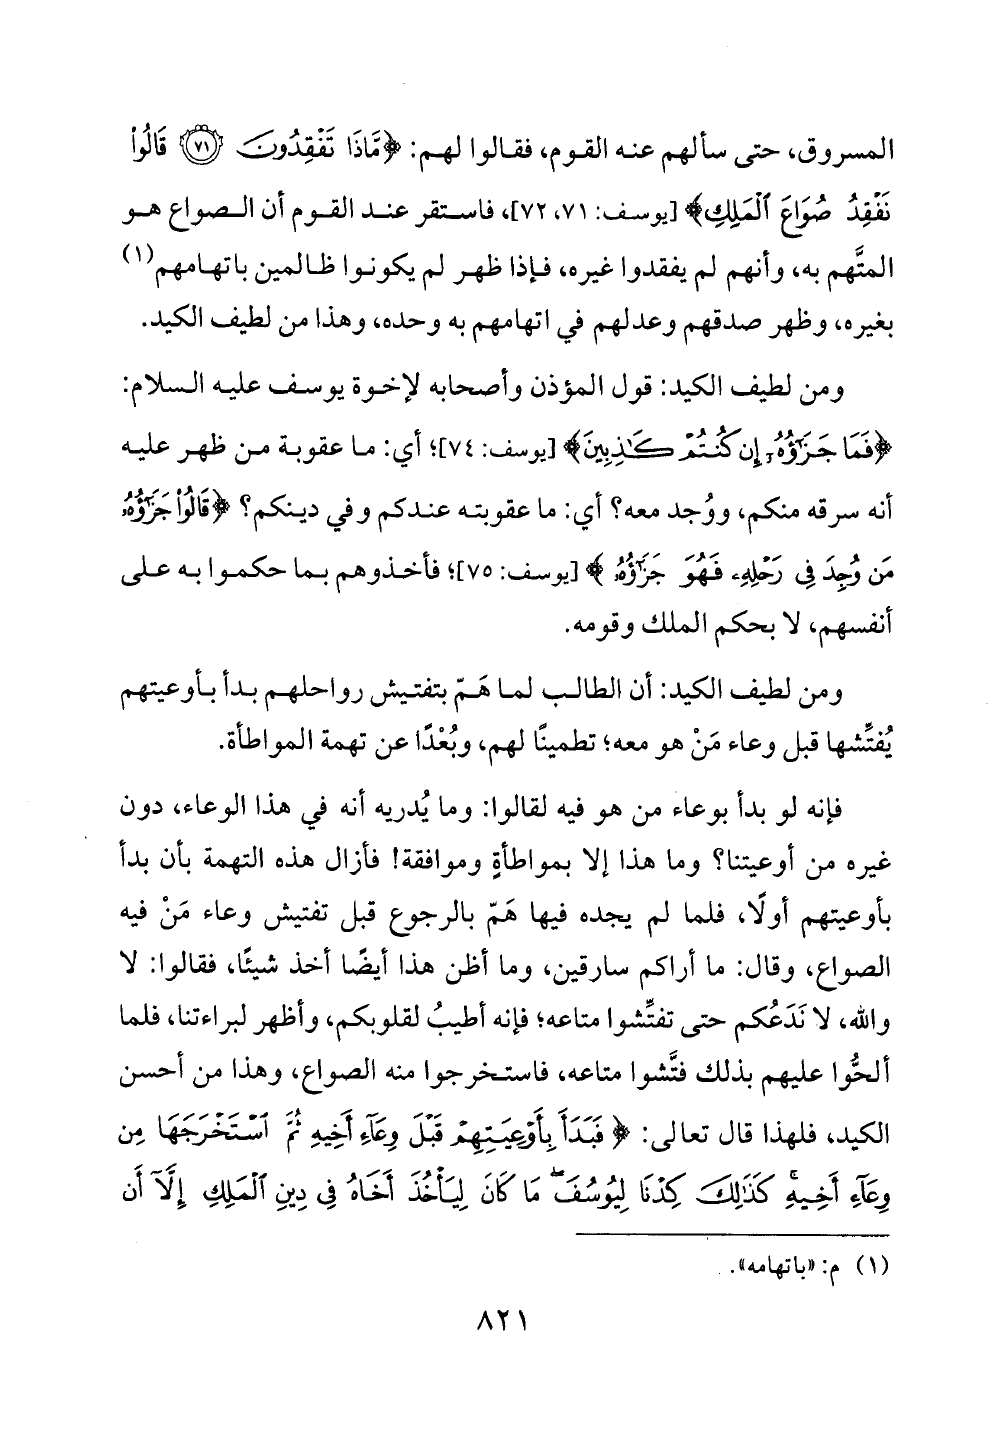 المسروق، حتى سألهم عنه القوم، فقالوا لهم: ﴿مَّاذَا تَفْقِدُونَ ۝٧١ قَالُوا۟
نَفْقِدُ صُوَاعَ ٱلْمَلِكِ﴾ [يوسف: ٧١، ٧٢]، فاستقر عند القوم أن الصواع هو
المتَّهم به، وأنهم لم يفقدوا غيره، فإذا ظهر لم يكونوا ظالمين باتهامهم(١)
بغيره، وظهر صدقهم وعدلهم في اتهامهم به وحده، وهذا من لطيف الكيد.
ومن لطيف الكيد: قول المؤذن وأصحابه لإخوة يوسف عليه السلام:
﴿فَمَا جَزَٰٓؤُهُۥٓ إِن كُنتُمْ كَٰذِبِينَ﴾ [يوسف: ٧٤]؛ أي: ما عقوبة من ظهر عليه
أنه سرقه منكم، ووُجد معه؟ أي: ما عقوبته عندكم وفي دينكم؟ ﴿قَالُوا۟ جَزَٰٓؤُهُۥ
مَن وُجِدَ فِى رَحْلِهِۦ فَهُوَ جَزَٰٓؤُهُۥ ﴾ [يوسف: ٧٥]؛ فأخذوهم بما حكموا به على
أنفسهم، لا بحكم الملك وقومه.
ومن لطيف الكيد: أن الطالب لما هَمّ بتفتيش رواحلهم بدأ بأوعيتهم
يُفتِّشها قبل وعاء مَنْ هو معه؛ تطمينًا لهم، وبُعْدًا عن تهمة المواطأة.
فإنه لو بدأ بوعاء من هو فيه لقالوا: وما يُدريه أنه في هذا الوعاء، دون
غيره من أوعيتنا؟ وما هذا إلا بمواطأةٍ وموافقة! فأزال هذه التهمة بأن بدأ
بأوعيتهم أولًا، فلما لم يجده فيها هَمّ بالرجوع قبل تفتيش وعاء مَنْ فيه
الصواع، وقال: ما أراكم سارقين، وما أظن هذا أيضًا أخذ شيئًا، فقالوا: لا
والله، لا نَدَعُكم حتى تفتِّشوا متاعه؛ فإنه أطيبُ لقلوبكم، وأظهر لبراءتنا، فلما
ألحُّوا عليهم بذلك فتَّشوا متاعه، فاستخرجوا منه الصواع، وهذا من أحسن
الكيد، فلهذا قال تعالى: ﴿ فَبَدَأَ بِأَوْعِيَتِهِمْ قَبْلَ وِعَآءِ أَخِيهِ ثُمَّ ٱسْتَخْرَجَهَا مِن
وِعَآءِ أَخِيهِ ۚ كَذَٰلِكَ كِدْنَا لِيُوسُفَ ۖ مَا كَانَ لِيَأْخُذَ أَخَاهُ فِى دِينِ ٱلْمَلِكِ إِلَّآ أَن
(١) م: «باتهامه».
٨٢١